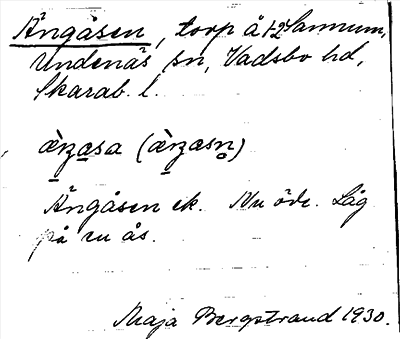 Ängåsen, torp å 1-2 Sannum,
Undenäs sn, Vadsbo hd,
Skarab. l.
Ängåsen ek. Nu öde. Låg
på en ås.
Maja Bergstrand 1930.